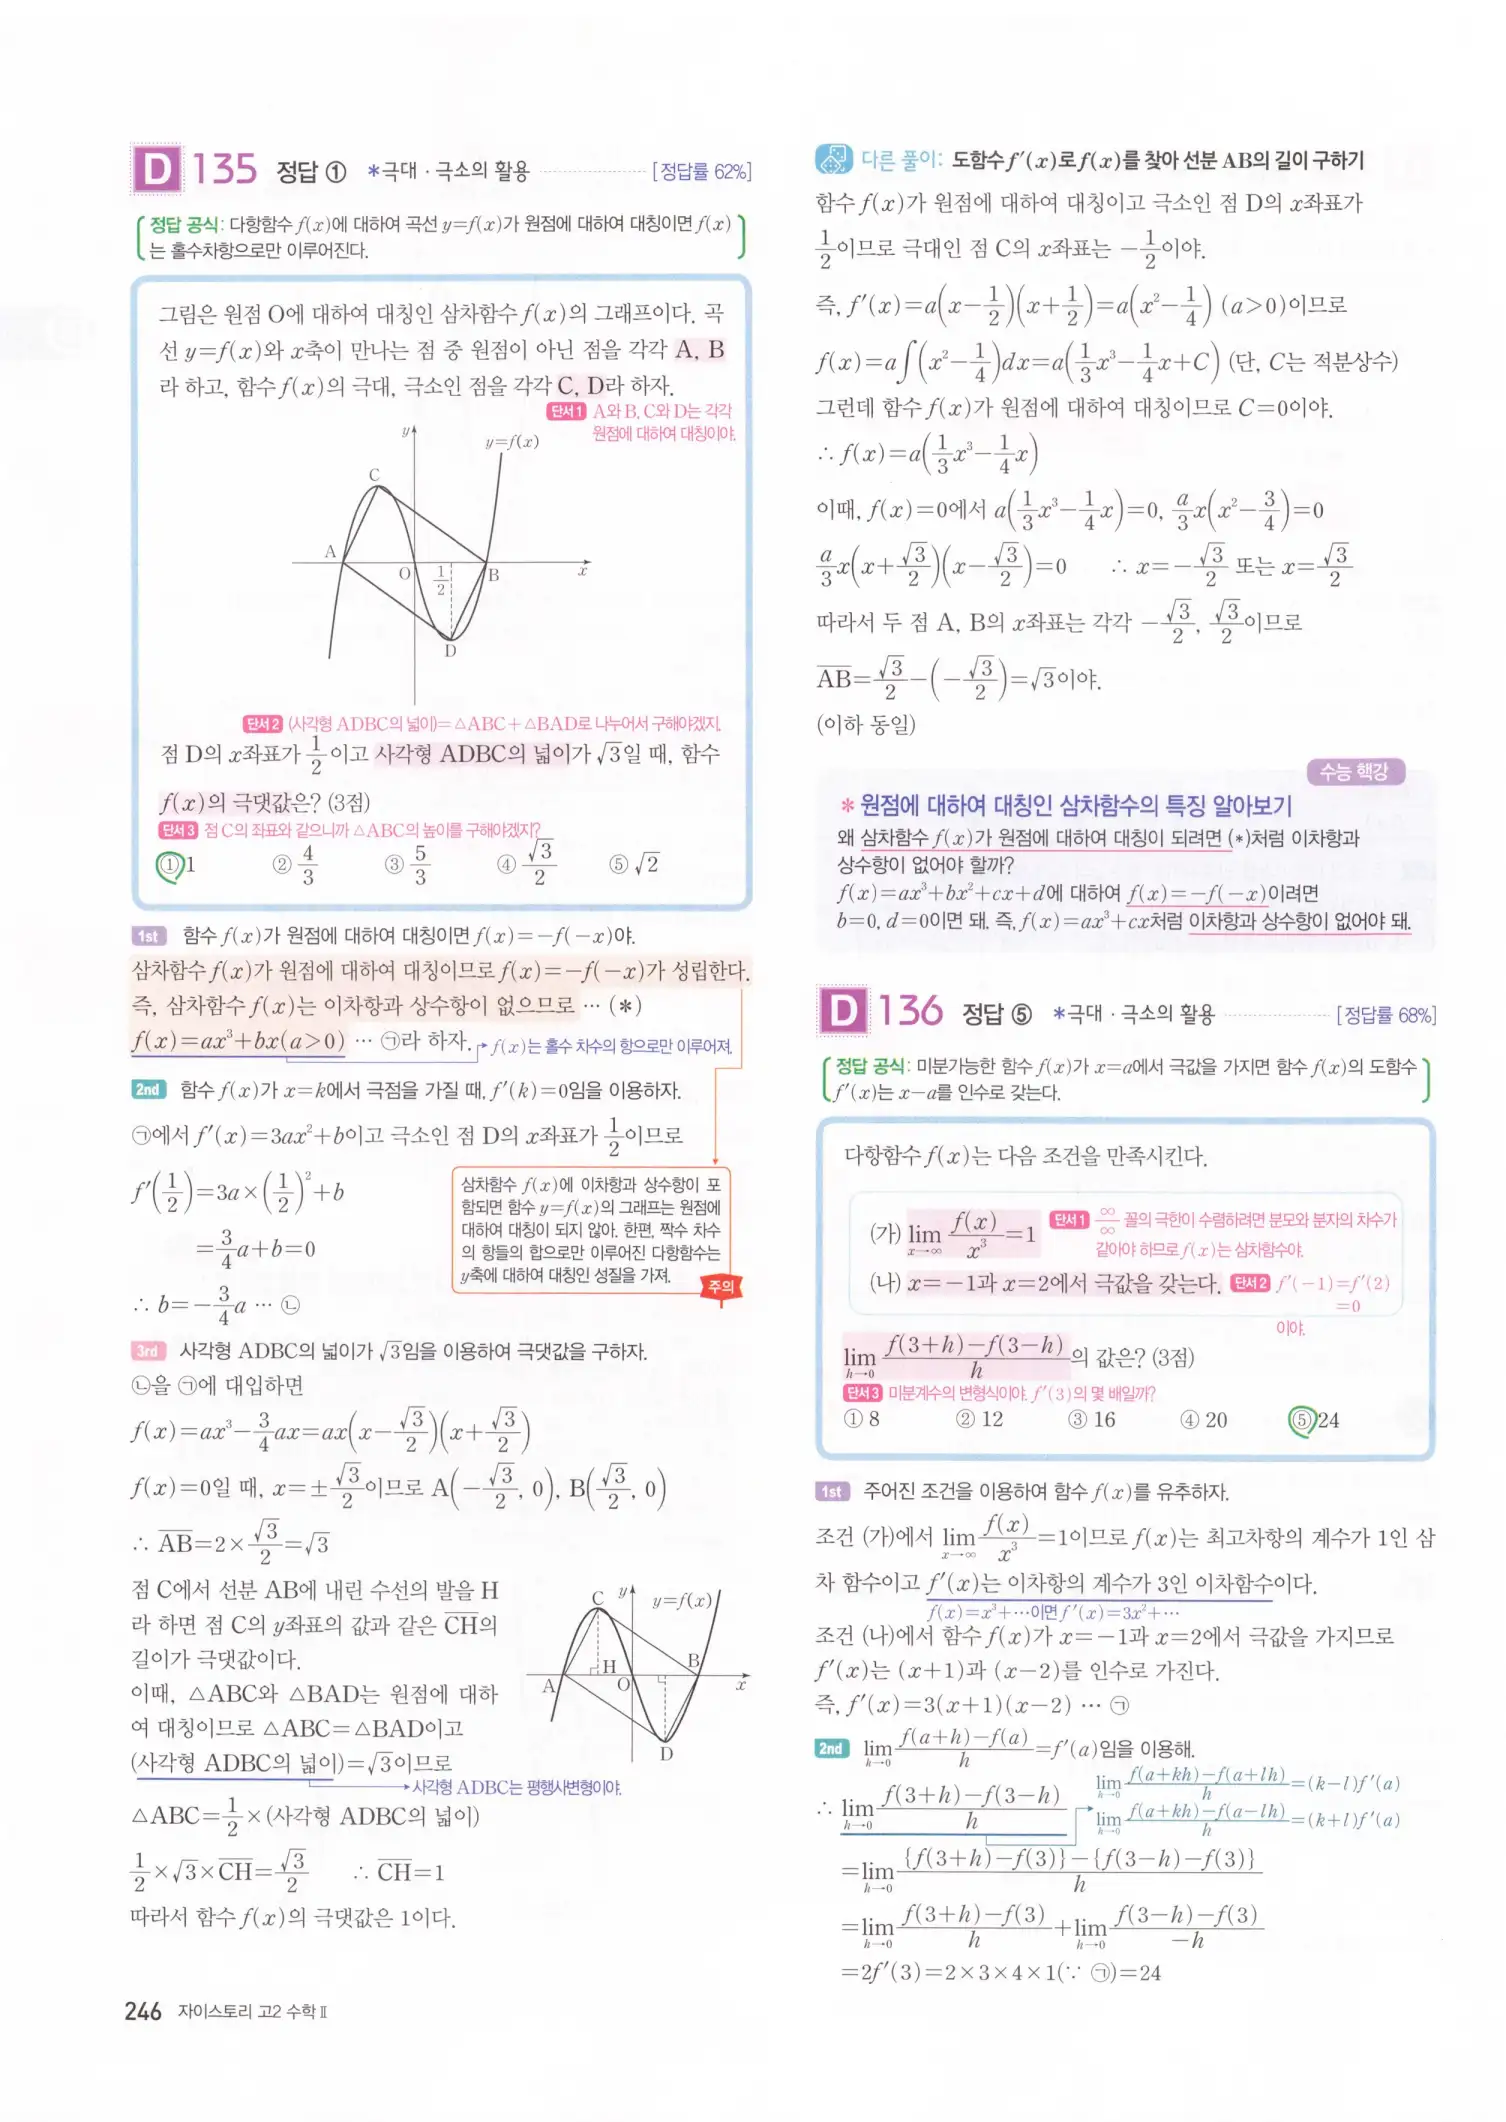 D 135 정답 ① *극대·극소의 활용 [정답률 62%]
정답 공식: 다항함수 f(x)에 대하여 곡선 y=f(x)가 원점에 대하여 대칭이면 f(x)
는 홀수차항으로만 이루어진다.
그림은 원점 O에 대하여 대칭인 삼차함수 f(x)의 그래프이다. 곡
선 y=f(x)와 x축이 만나는 점 중 원점이 아닌 점을 각각 A, B
라 하고, 함수 f(x)의 극대, 극소인 점을 각각 C, D라 하자.
단서1 A와 B, C와 D는 각각
원점에 대하여 대칭이야.
y
y=f(x)
C
A
O
1/2
B
x
D
단서2 (사각형 ADBC의 넓이)=△ABC+△BAD로 나누어서 구해야겠지.
점 D의 x좌표가 1/2이고 사각형 ADBC의 넓이가 √3일 때, 함수
f(x)의 극댓값은? (3점)
단서3 점 C의 좌표와 같으니까 △ABC의 높이를 구해야겠지?
① 1 ② 4/3 ③ 5/3 ④ √3/2 ⑤ √2
1st 함수 f(x)가 원점에 대하여 대칭이면 f(x)=-f(-x)야.
삼차함수 f(x)가 원점에 대하여 대칭이므로 f(x)=-f(-x)가 성립한다.
즉, 삼차함수 f(x)는 이차항과 상수항이 없으므로 … (*)
f(x)=ax³+bx(a>0) … ㉠라 하자. f(x)는 홀수 차수의 항으로만 이루어져.
2nd 함수 f(x)가 x=k에서 극점을 가질 때, f'(k)=0임을 이용하자.
㉠에서 f'(x)=3ax²+b이고 극소인 점 D의 x좌표가 1/2이므로
f'(1/2)=3a×(1/2)²+b
=3/4a+b=0
∴ b=-3/4a … ㉡
삼차함수 f(x)에 이차항과 상수항이 포
함되면 함수 y=f(x)의 그래프는 원점에
대하여 대칭이 되지 않아. 한편, 짝수 차수
의 항들의 합으로만 이루어진 다항함수는
y축에 대하여 대칭인 성질을 가져.
주의
3rd 사각형 ADBC의 넓이가 √3임을 이용하여 극댓값을 구하자.
㉡을 ㉠에 대입하면
f(x)=ax³-3/4ax=ax(x-√3/2)(x+√3/2)
f(x)=0일 때, x=±√3/2이므로 A(-√3/2, 0), B(√3/2, 0)
∴ AB=2×√3/2=√3
점 C에서 선분 AB에 내린 수선의 발을 H
라 하면 점 C의 y좌표의 값과 같은 CH의
길이가 극댓값이다.
이때, △ABC와 △BAD는 원점에 대하
여 대칭이므로 △ABC=△BAD이고
(사각형 ADBC의 넓이)=√3이므로
사각형 ADBC는 평행사변형이야.
C
y
y=f(x)
H
B
A
O
x
D
△ABC=1/2×(사각형 ADBC의 넓이)
1/2×√3×CH=√3/2 ∴ CH=1
따라서 함수 f(x)의 극댓값은 1이다.
246 자이스토리 고2 수학Ⅱ
다른 풀이: 도함수 f'(x)로 f(x)를 찾아 선분 AB의 길이 구하기
함수 f(x)가 원점에 대하여 대칭이고 극소인 점 D의 x좌표가
1/2이므로 극대인 점 C의 x좌표는 -1/2이야.
즉, f'(x)=a(x-1/2)(x+1/2)=a(x²-1/4) (a>0)이므로
f(x)=a∫(x²-1/4)dx=a(1/3x³-1/4x+C) (단, C는 적분상수)
그런데 함수 f(x)가 원점에 대하여 대칭이므로 C=0이야.
∴ f(x)=a(1/3x³-1/4x)
이때, f(x)=0에서 a(1/3x³-1/4x)=0, a/3x(x²-3/4)=0
a/3x(x+√3/2)(x-√3/2)=0 ∴ x=-√3/2 또는 x=√3/2
따라서 두 점 A, B의 x좌표는 각각 -√3/2, √3/2이므로
AB=√3/2-(-√3/2)=√3이야.
(이하 동일)
수능 핵강
* 원점에 대하여 대칭인 삼차함수의 특징 알아보기
왜 삼차함수 f(x)가 원점에 대하여 대칭이 되려면 (*)처럼 이차항과
상수항이 없어야 할까?
f(x)=ax³+bx²+cx+d에 대하여 f(x)=-f(-x)이려면
b=0, d=0이면 돼. 즉, f(x)=ax³+cx처럼 이차항과 상수항이 없어야 돼.
D 136 정답 ⑤ *극대·극소의 활용 [정답률 68%]
정답 공식: 미분가능한 함수 f(x)가 x=a에서 극값을 가지면 함수 f(x)의 도함수
f'(x)는 x-a를 인수로 갖는다.
다항함수 f(x)는 다음 조건을 만족시킨다.
(가) lim x→∞ f(x)/x³=1 단서1 ∞/∞ 꼴의 극한이 수렴하려면 분모와 분자의 차수가
같아야 하므로 f(x)는 삼차함수야.
(나) x=-1과 x=2에서 극값을 갖는다. 단서2 f'(-1)=f'(2)
=0
이야.
lim h→0 {f(3+h)-f(3-h)}/h의 값은? (3점)
단서3 미분계수의 변형식이야. f'(3)의 몇 배일까?
① 8 ② 12 ③ 16 ④ 20 ⑤ 24
1st 주어진 조건을 이용하여 함수 f(x)를 유추하자.
조건 (가)에서 lim x→∞ f(x)/x³=1이므로 f(x)는 최고차항의 계수가 1인 삼
차 함수이고 f'(x)는 이차항의 계수가 3인 이차함수이다.
f(x)=x³+…이면 f'(x)=3x²+…
조건 (나)에서 함수 f(x)가 x=-1과 x=2에서 극값을 가지므로
f'(x)는 (x+1)과 (x-2)를 인수로 가진다.
즉, f'(x)=3(x+1)(x-2) … ㉠
2nd lim h→0 {f(a+h)-f(a)}/h=f'(a)임을 이용해.
∴ lim h→0 {f(3+h)-f(3-h)}/h
lim h→0 {f(a+kh)-f(a+lh)}/h=(k-l)f'(a)
lim h→0 {f(a+kh)-f(a-lh)}/h=(k+l)f'(a)
=lim h→0 [{f(3+h)-f(3)}-{f(3-h)-f(3)}]/h
=lim h→0 {f(3+h)-f(3)}/h+lim h→0 {f(3-h)-f(3)}/-h
=2f'(3)=2×3×4×1(∵ ㉠)=24